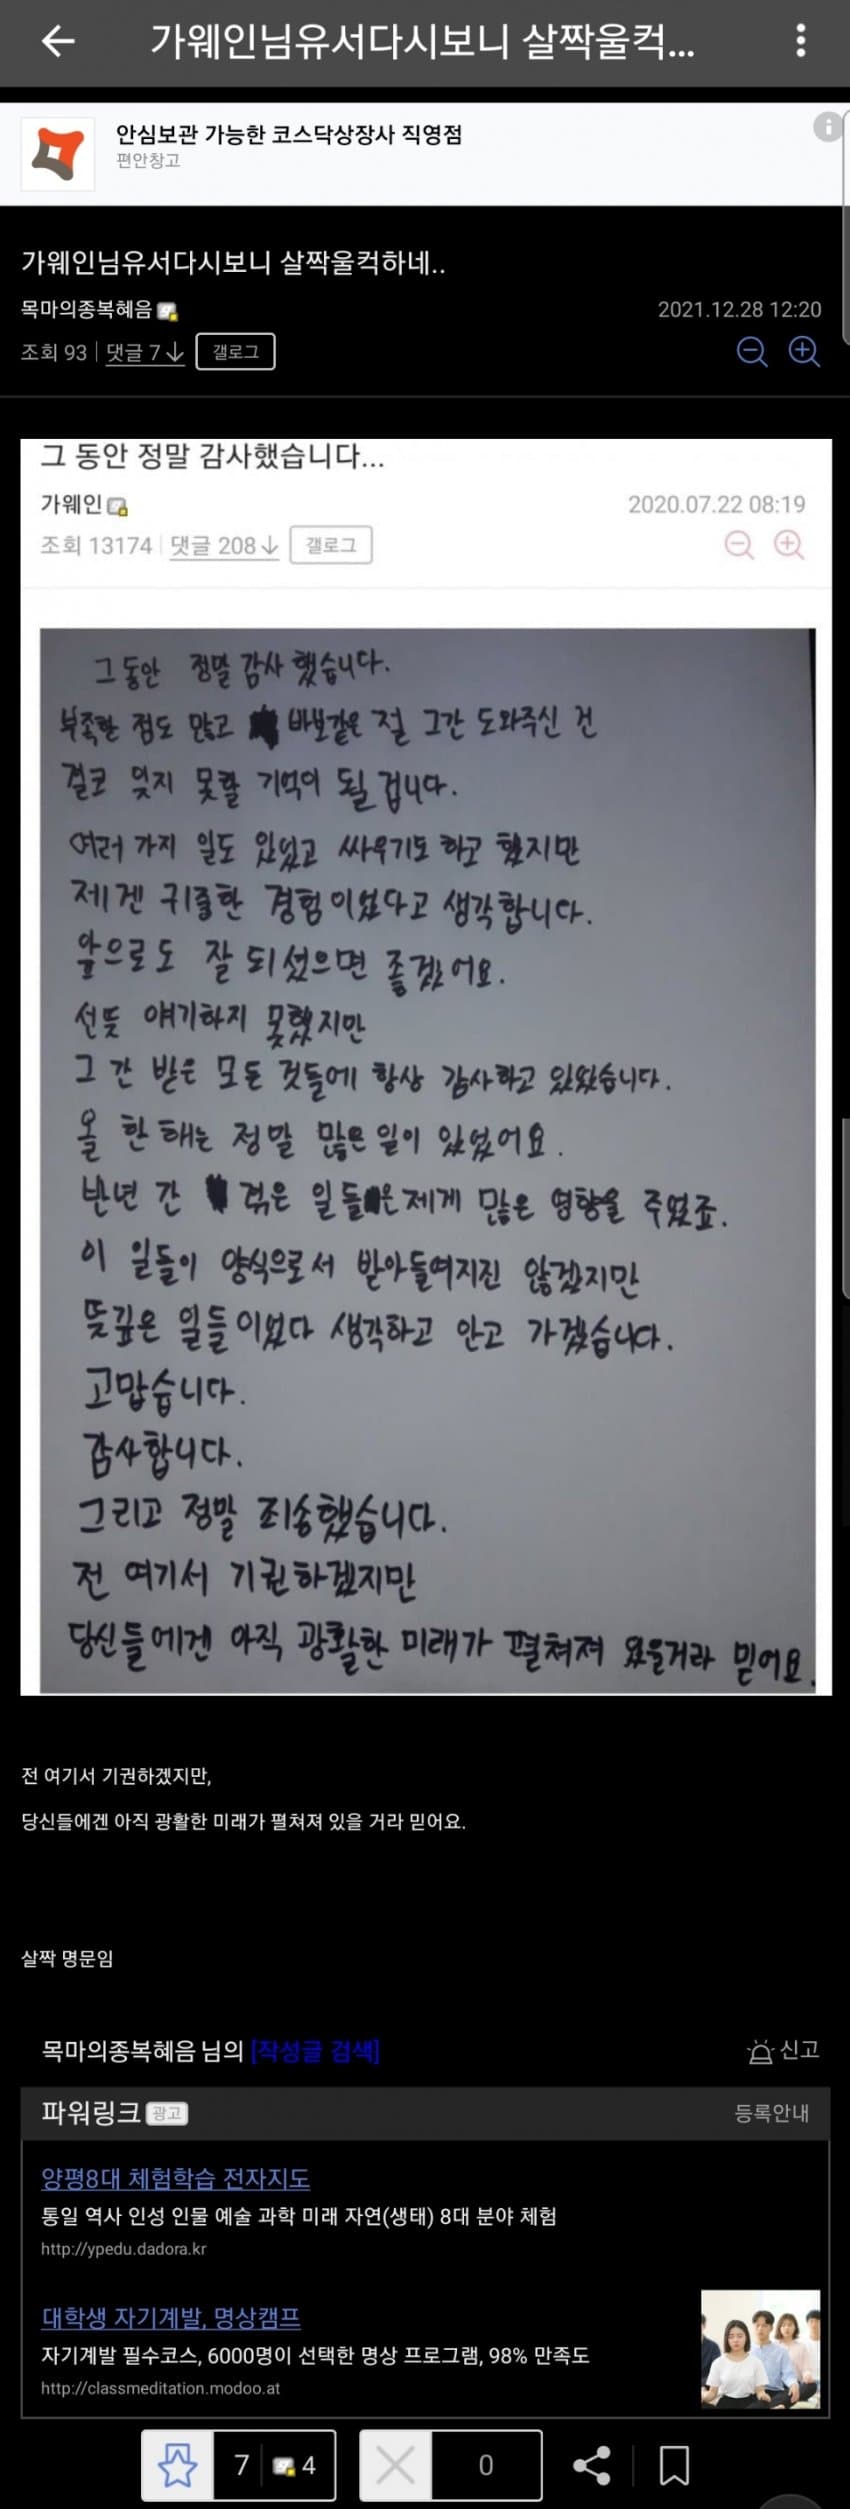 가웨인님유서다시보니 살짝울컥...
안심보관 가능한 코스닥상장사 직영점
편안창고
가웨인님유서다시보니 살짝울컥하네..
목마의종복혜음
2021.12.28 12:20
조회 93 댓글 7↓ 갤로그
그 동안 정말 감사했습니다...
가웨인
2020.07.22 08:19
조회 13174 댓글 208↓ 갤로그
그동안 정말 감사 했습니다.
부족한 점도 많고 바보같은 절 그간 도와주신 건
결코 잊지 못할 기억이 될 겁니다.
여러 가지 일도 있었고 싸우기도 하고 했지만
제겐 귀중한 경험이었다고 생각합니다.
앞으로도 잘 되셨으면 좋겠어요.
선뜻 얘기하지 못했지만
그 간 받은 모든 것들에 항상 감사하고 있었습니다.
올 한 해는 정말 많은 일이 있었어요.
반년 간 겪은 일들은 제게 많은 영향을 주었죠.
이 일들이 양식으로서 받아들여지진 않겠지만
뜻깊은 일들이었다 생각하고 안고 가겠습니다.
고맙습니다.
감사합니다.
그리고 정말 죄송했습니다.
전 여기서 기권하겠지만
당신들에겐 아직 광활한 미래가 펼쳐져 있을거라 믿어요.
전 여기서 기권하겠지만,
당신들에겐 아직 광활한 미래가 펼쳐져 있을 거라 믿어요.
살짝 명문임
목마의종복혜음 님의 [작성글 검색]
신고
파워링크 광고
등록안내
양평8대 체험학습 전자지도
통일 역사 인성 인물 예술 과학 미래 자연(생태) 8대 분야 체험
http://ypedu.dadora.kr
대학생 자기계발, 명상캠프
자기계발 필수코스, 6000명이 선택한 명상 프로그램, 98% 만족도
http://classmeditation.modoo.at
7 4 0